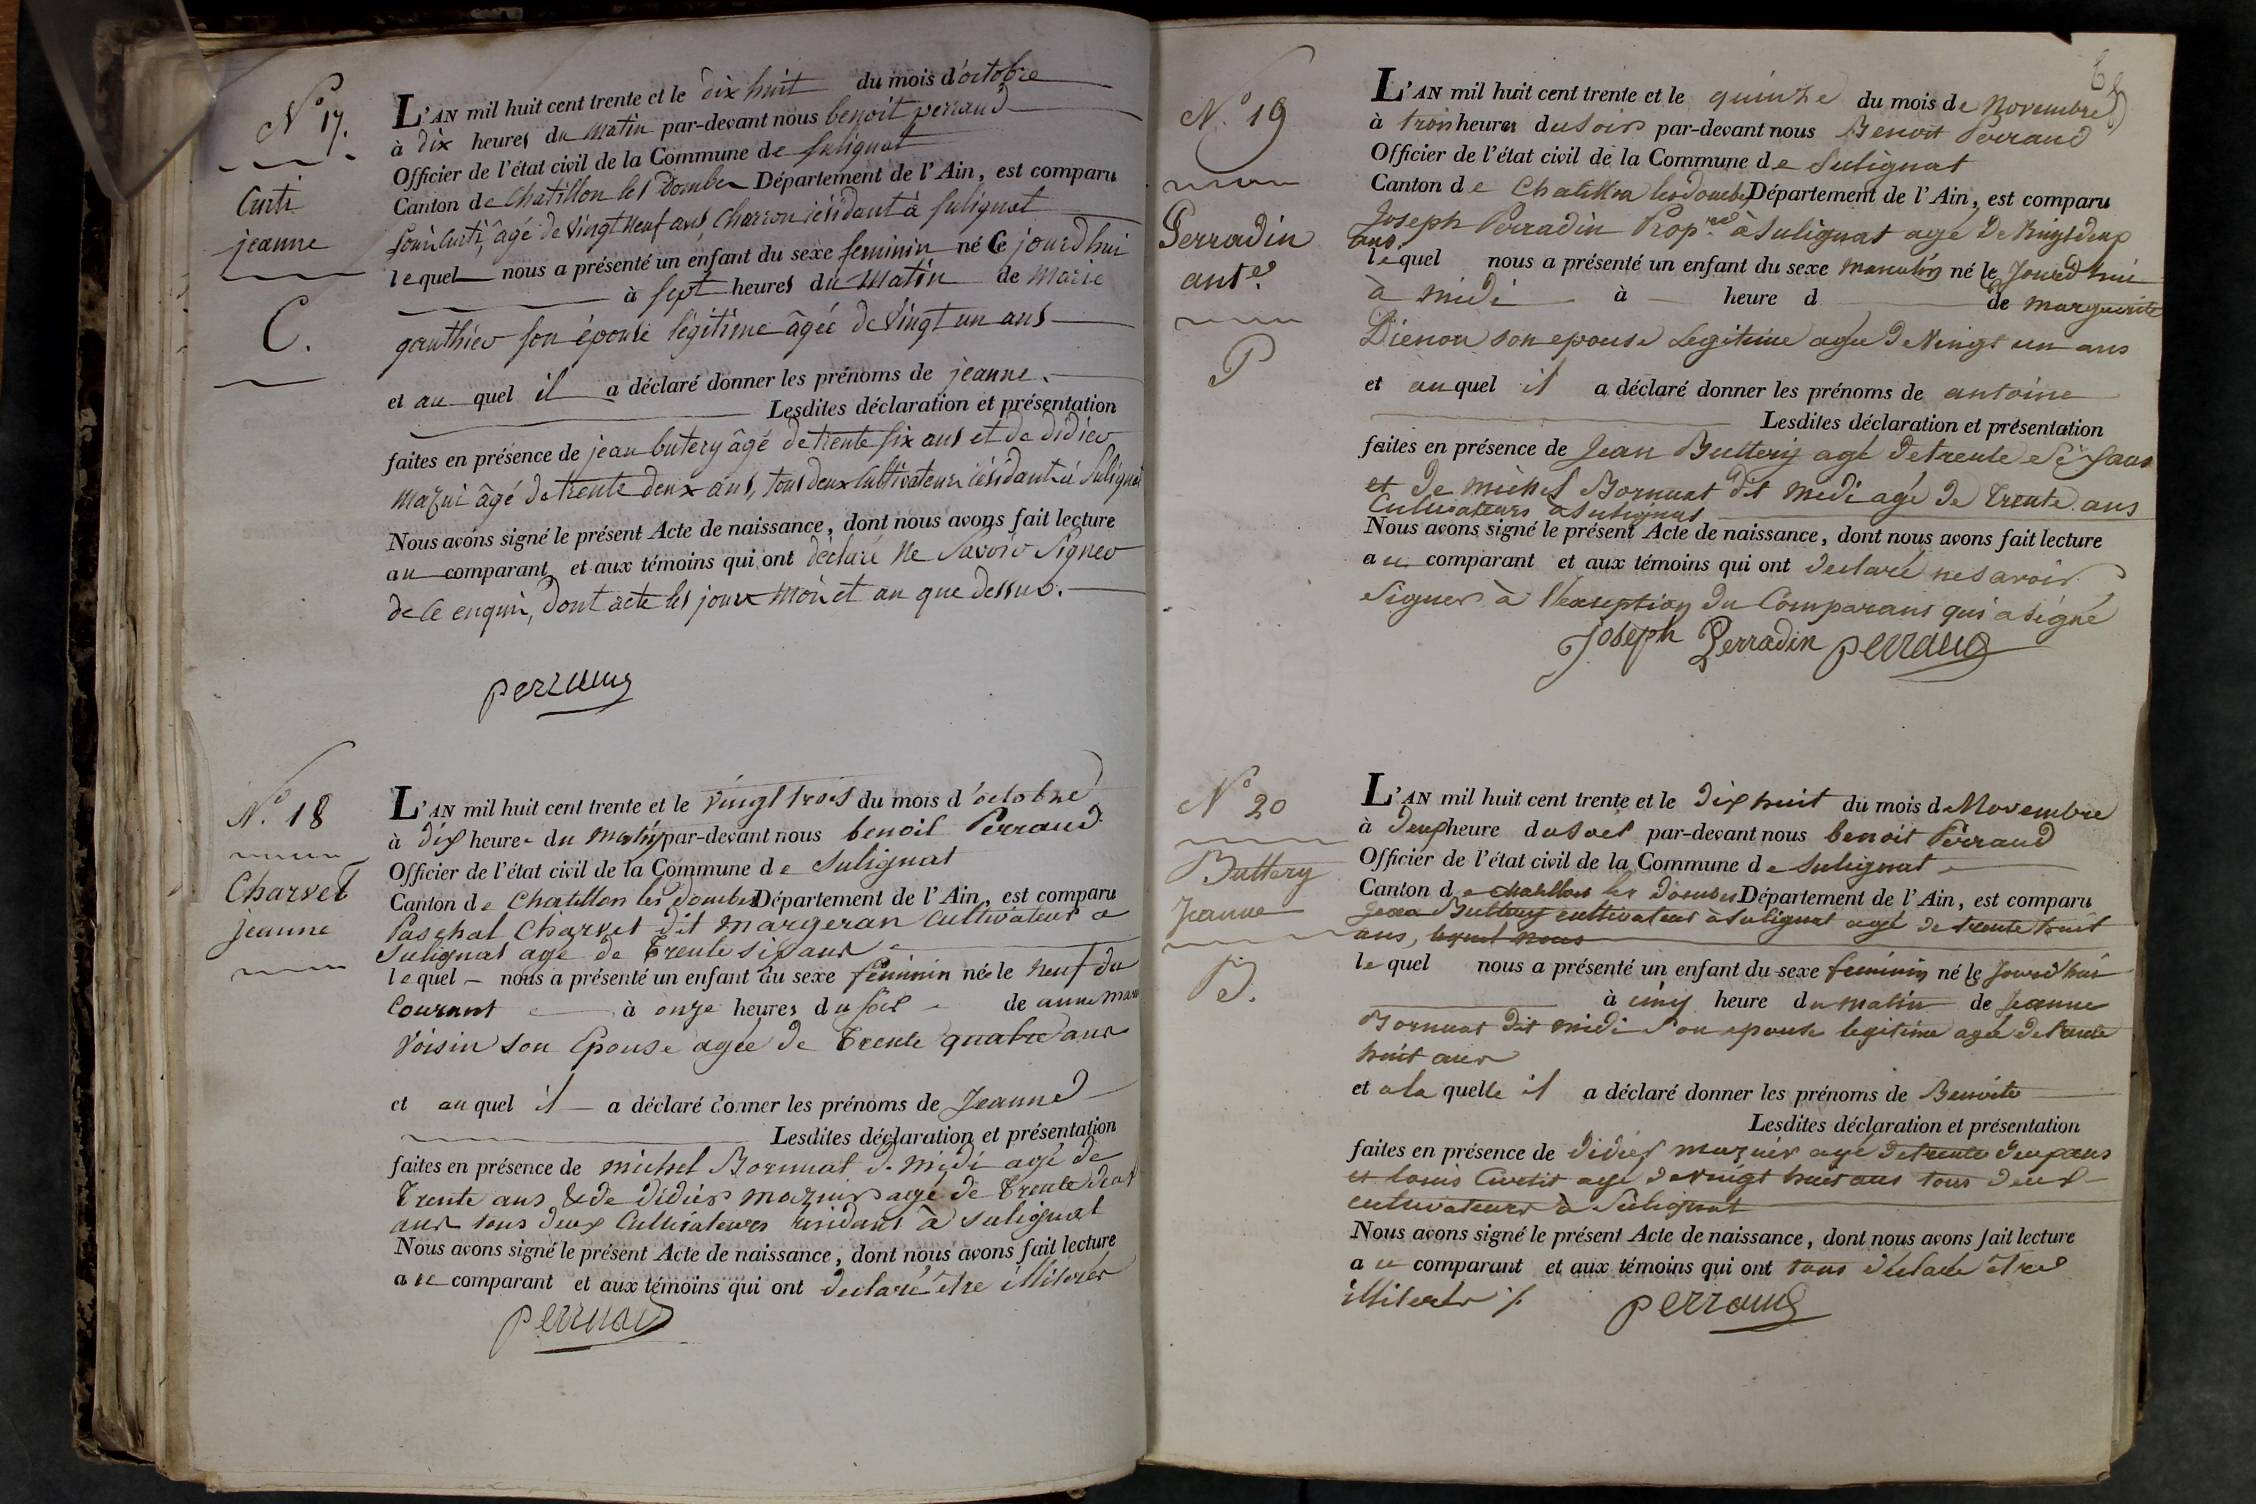 N° 17.
Curti
jeanne
C.
L'AN mil huit cent trente et le dix huit du mois d'octobre
à dix heures du matin par-devant nous benoit perraud
Officier de l'état civil de la Commune de sulignat
Canton de Chatillon les Dombes Département de l'Ain, est comparu
Louis Curti, âgé de vingt neuf ans, charron résidant à sulignat
lequel nous a présenté un enfant du sexe feminin né ce jourd'hui
à sept heures du matin de marie
gauthier son épouse légitime âgée de vingt un ans
et au quel il a déclaré donner les prénoms de jeanne.
Lesdites déclaration et présentation
faites en présence de jean butery âgé de trente six ans et de didier
mazui âgé de trente deux ans, tous deux cultivateurs résidant à sulignat
Nous avons signé le présent Acte de naissance, dont nous avons fait lecture
au comparant et aux témoins qui ont déclaré ne savoir signer
de ce enquis, dont acte les jour mois et an que dessus.
perraud
N° 18
Charvet
jeanne
L'AN mil huit cent trente et le vingt trois du mois d'octobre
à dix heure du matin par-devant nous benoit Perraud
Officier de l'état civil de la Commune de Sulignat
Canton de Chatillon les dombes Département de l'Ain, est comparu
Paschal Charvet dit margeran cultivateur a
Sulignat agé de trente six ans
lequel nous a présenté un enfant du sexe féminin née le neuf du
Courant à onze heures du soir de anne marie
Voisin son Epouse agée de trente quatre ans
et au quel il a déclaré donner les prénoms de Jeanne
Lesdites déclaration et présentation
faites en présence de michel Bornuat d. midi agé de
trente ans & de didier mazuir agé de trente deux
ans tous deux Cultivateurs residant à sulignat
Nous avons signé le présent Acte de naissance, dont nous avons fait lecture
au comparant et aux témoins qui ont declaré être illiterés
perraud
65
N° 19
Perradin
ant.e
P
L'AN mil huit cent trente et le quinze du mois de Novembre
à trois heures du soir par-devant nous Benoit Perraud
Officier de l'état civil de la Commune de Sulignat
Canton de Chatillon les dombes Département de l'Ain, est comparu
Joseph Perradin Prop.re à Sulignat agé de vingt deux
ans
lequel nous a présenté un enfant du sexe masculin né le Jourd'hui
à midi à heure d de marguerite
Dienon son epouse Legitime agée de vingt un ans
et au quel il a déclaré donner les prénoms de antoine
Lesdites déclaration et présentation
faites en présence de Jean Buttery agé de trente six ans
et de michel Bornuat dit midi agé de trente ans
Cultivateurs à Sulignat
Nous avons signé le présent Acte de naissance, dont nous avons fait lecture
au comparant et aux témoins qui ont declaré ne savoir
signer à l'exseption du Comparant qui a signé
Joseph Perradin perraud
N° 20
Buttery
Jeanne
B.
L'AN mil huit cent trente et le dix huit du mois de Novembre
à deux heure du soir par-devant nous benoit Perraud
Officier de l'état civil de la Commune de sulignat
Canton de chatillon les dombes Département de l'Ain, est comparu
Jean Buttery cultivateur à Sulignat agé de trente huit
ans, lequel nous
lequel nous a présenté un enfant du sexe feminin né le Jourd'hui
à cinq heure du matin de Jeanne
Bornuat dit midi son epouse legitime agée de trente
huit ans
et a la quelle il a déclaré donner les prénoms de Benoite
Lesdites déclaration et présentation
faites en présence de didier mazuir agé de trente deux ans
et louis Curtit agé de vingt huit ans tous deux
cultivateurs à Sulignat
Nous avons signé le présent Acte de naissance, dont nous avons fait lecture
au comparant et aux témoins qui ont tous déclaré être
illiterés ./.
perraud